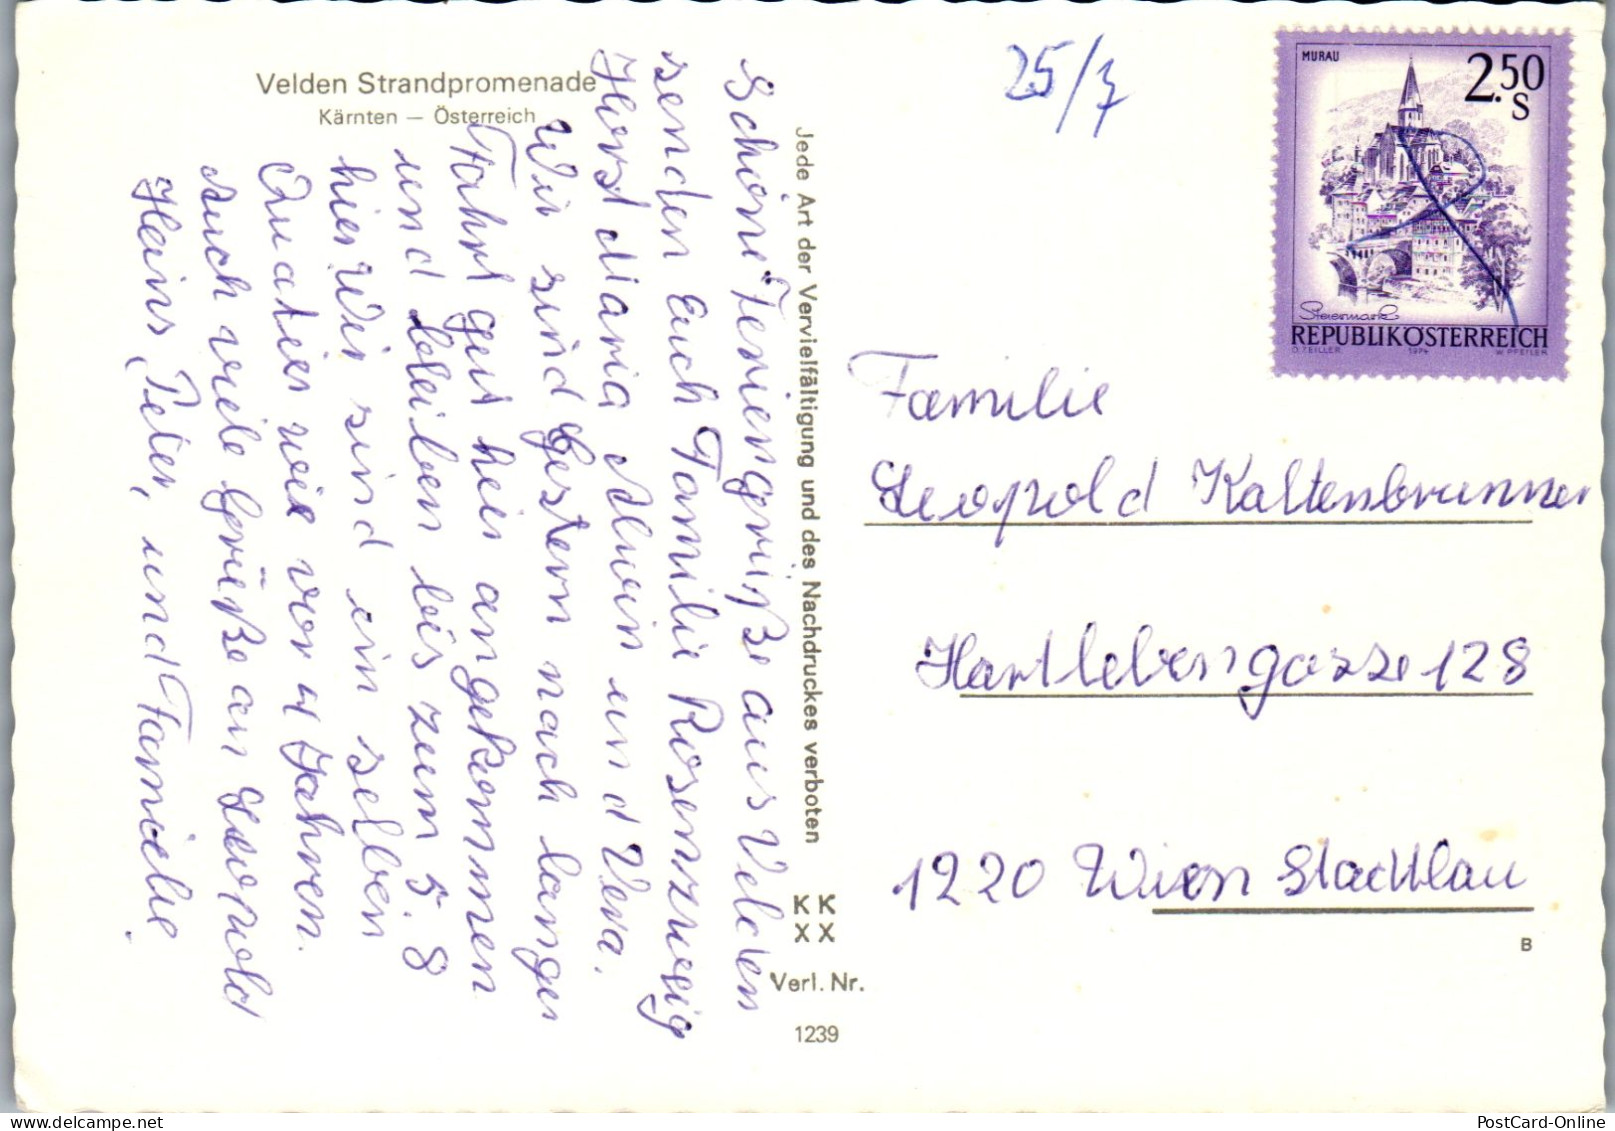 Velden Strandpromenade
Kärnten — Österreich
Schöne Feriengrüße aus Velden
senden Euch Familie Rosenzweig
Horst Maria Alwin und Vera.
Wir sind gestern nach langer
Fahrt gut hier angekommen
und bleiben bis zum 5. 8
hier Wir sind im selben
Quatier wie vor 4 Jahren.
Auch viele Grüße an Leopold
Heins, Peter, und Familie.
Jede Art der Vervielfältigung und des Nachdruckes verboten
KK
XX
Verl. Nr.
1239
25/7
MURAU
2.50
S
Steiermark
REPUBLIK ÖSTERREICH
O. ZEILLER 1974 W. PFEILER
Familie
Leopold Kaltenbrunner
Hartlebengasse 128
1220 Wien Stadtlau
B
PostCard-Online